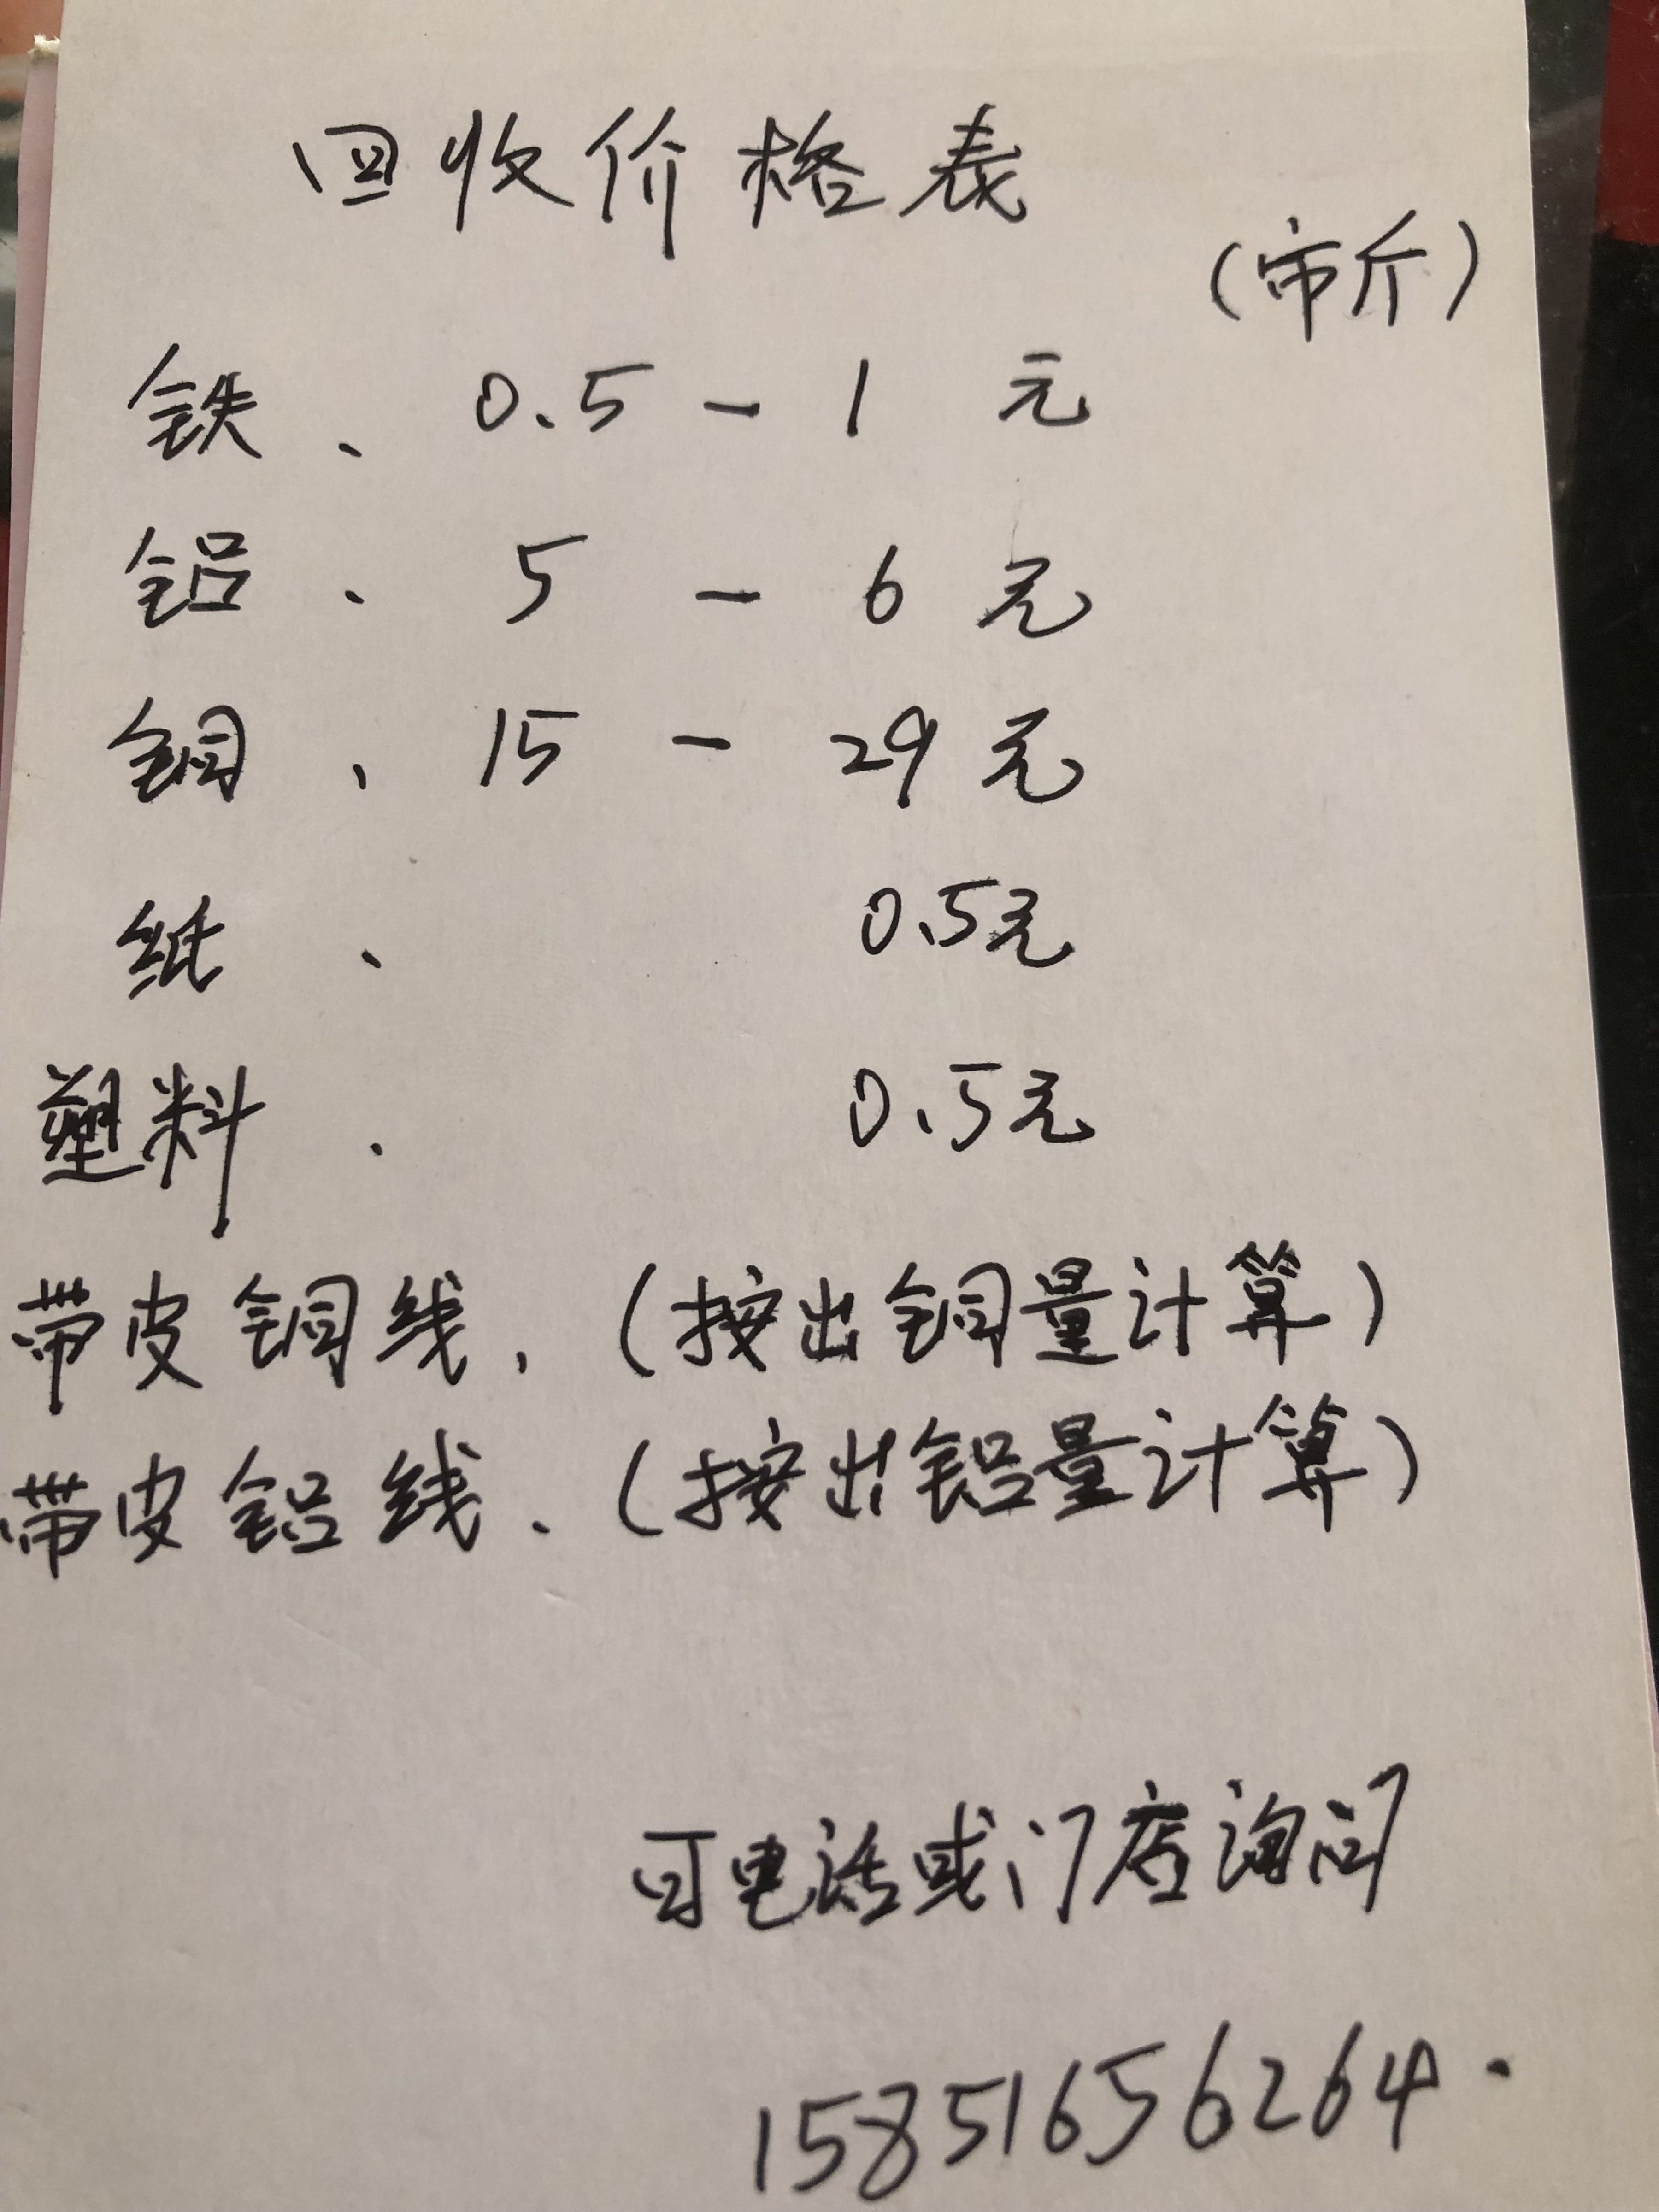 回收价格表
(市斤)
铁、0.5-1元
铝、5-6元
铜、15-29元
纸、0.5元
塑料、0.5元
带皮铜线、(按出铜量计算)
带皮铝线、(按出铝量计算)
可电话或门店询问
15851656264.